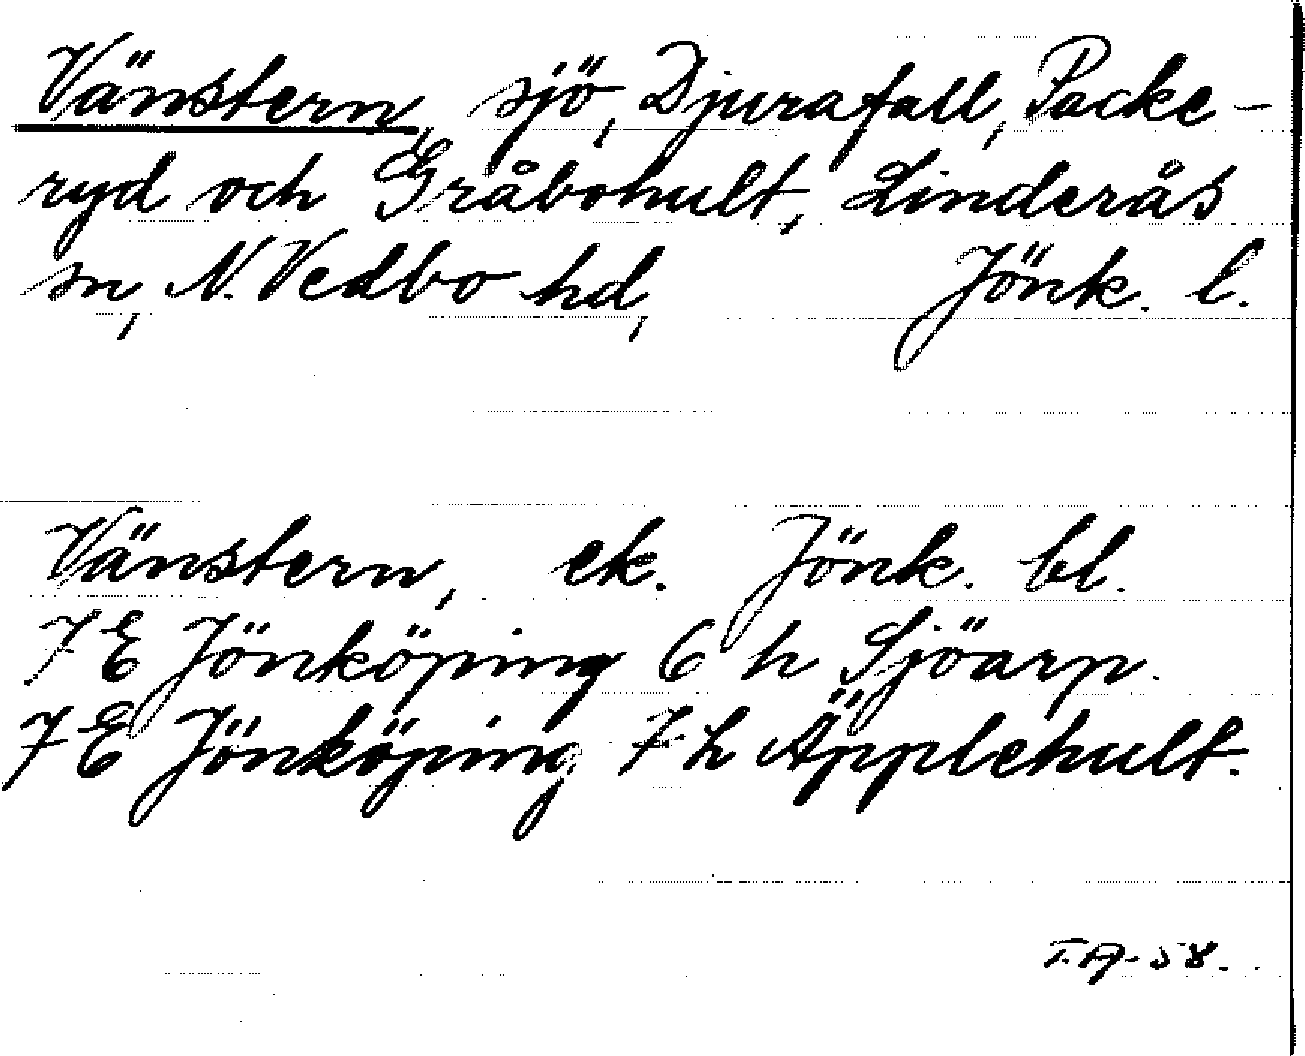 Vänstern, sjö, Djurafall, Packe-
ryd och Gråbohult, Linderås
sn, N. Vedbo hd, Jönk. l.
Vänstern, ek. Jönk. bl.
7E Jönköping 6 h Sjöarp.
7E Jönköping 7 h Äpplehult.
T.A-58.